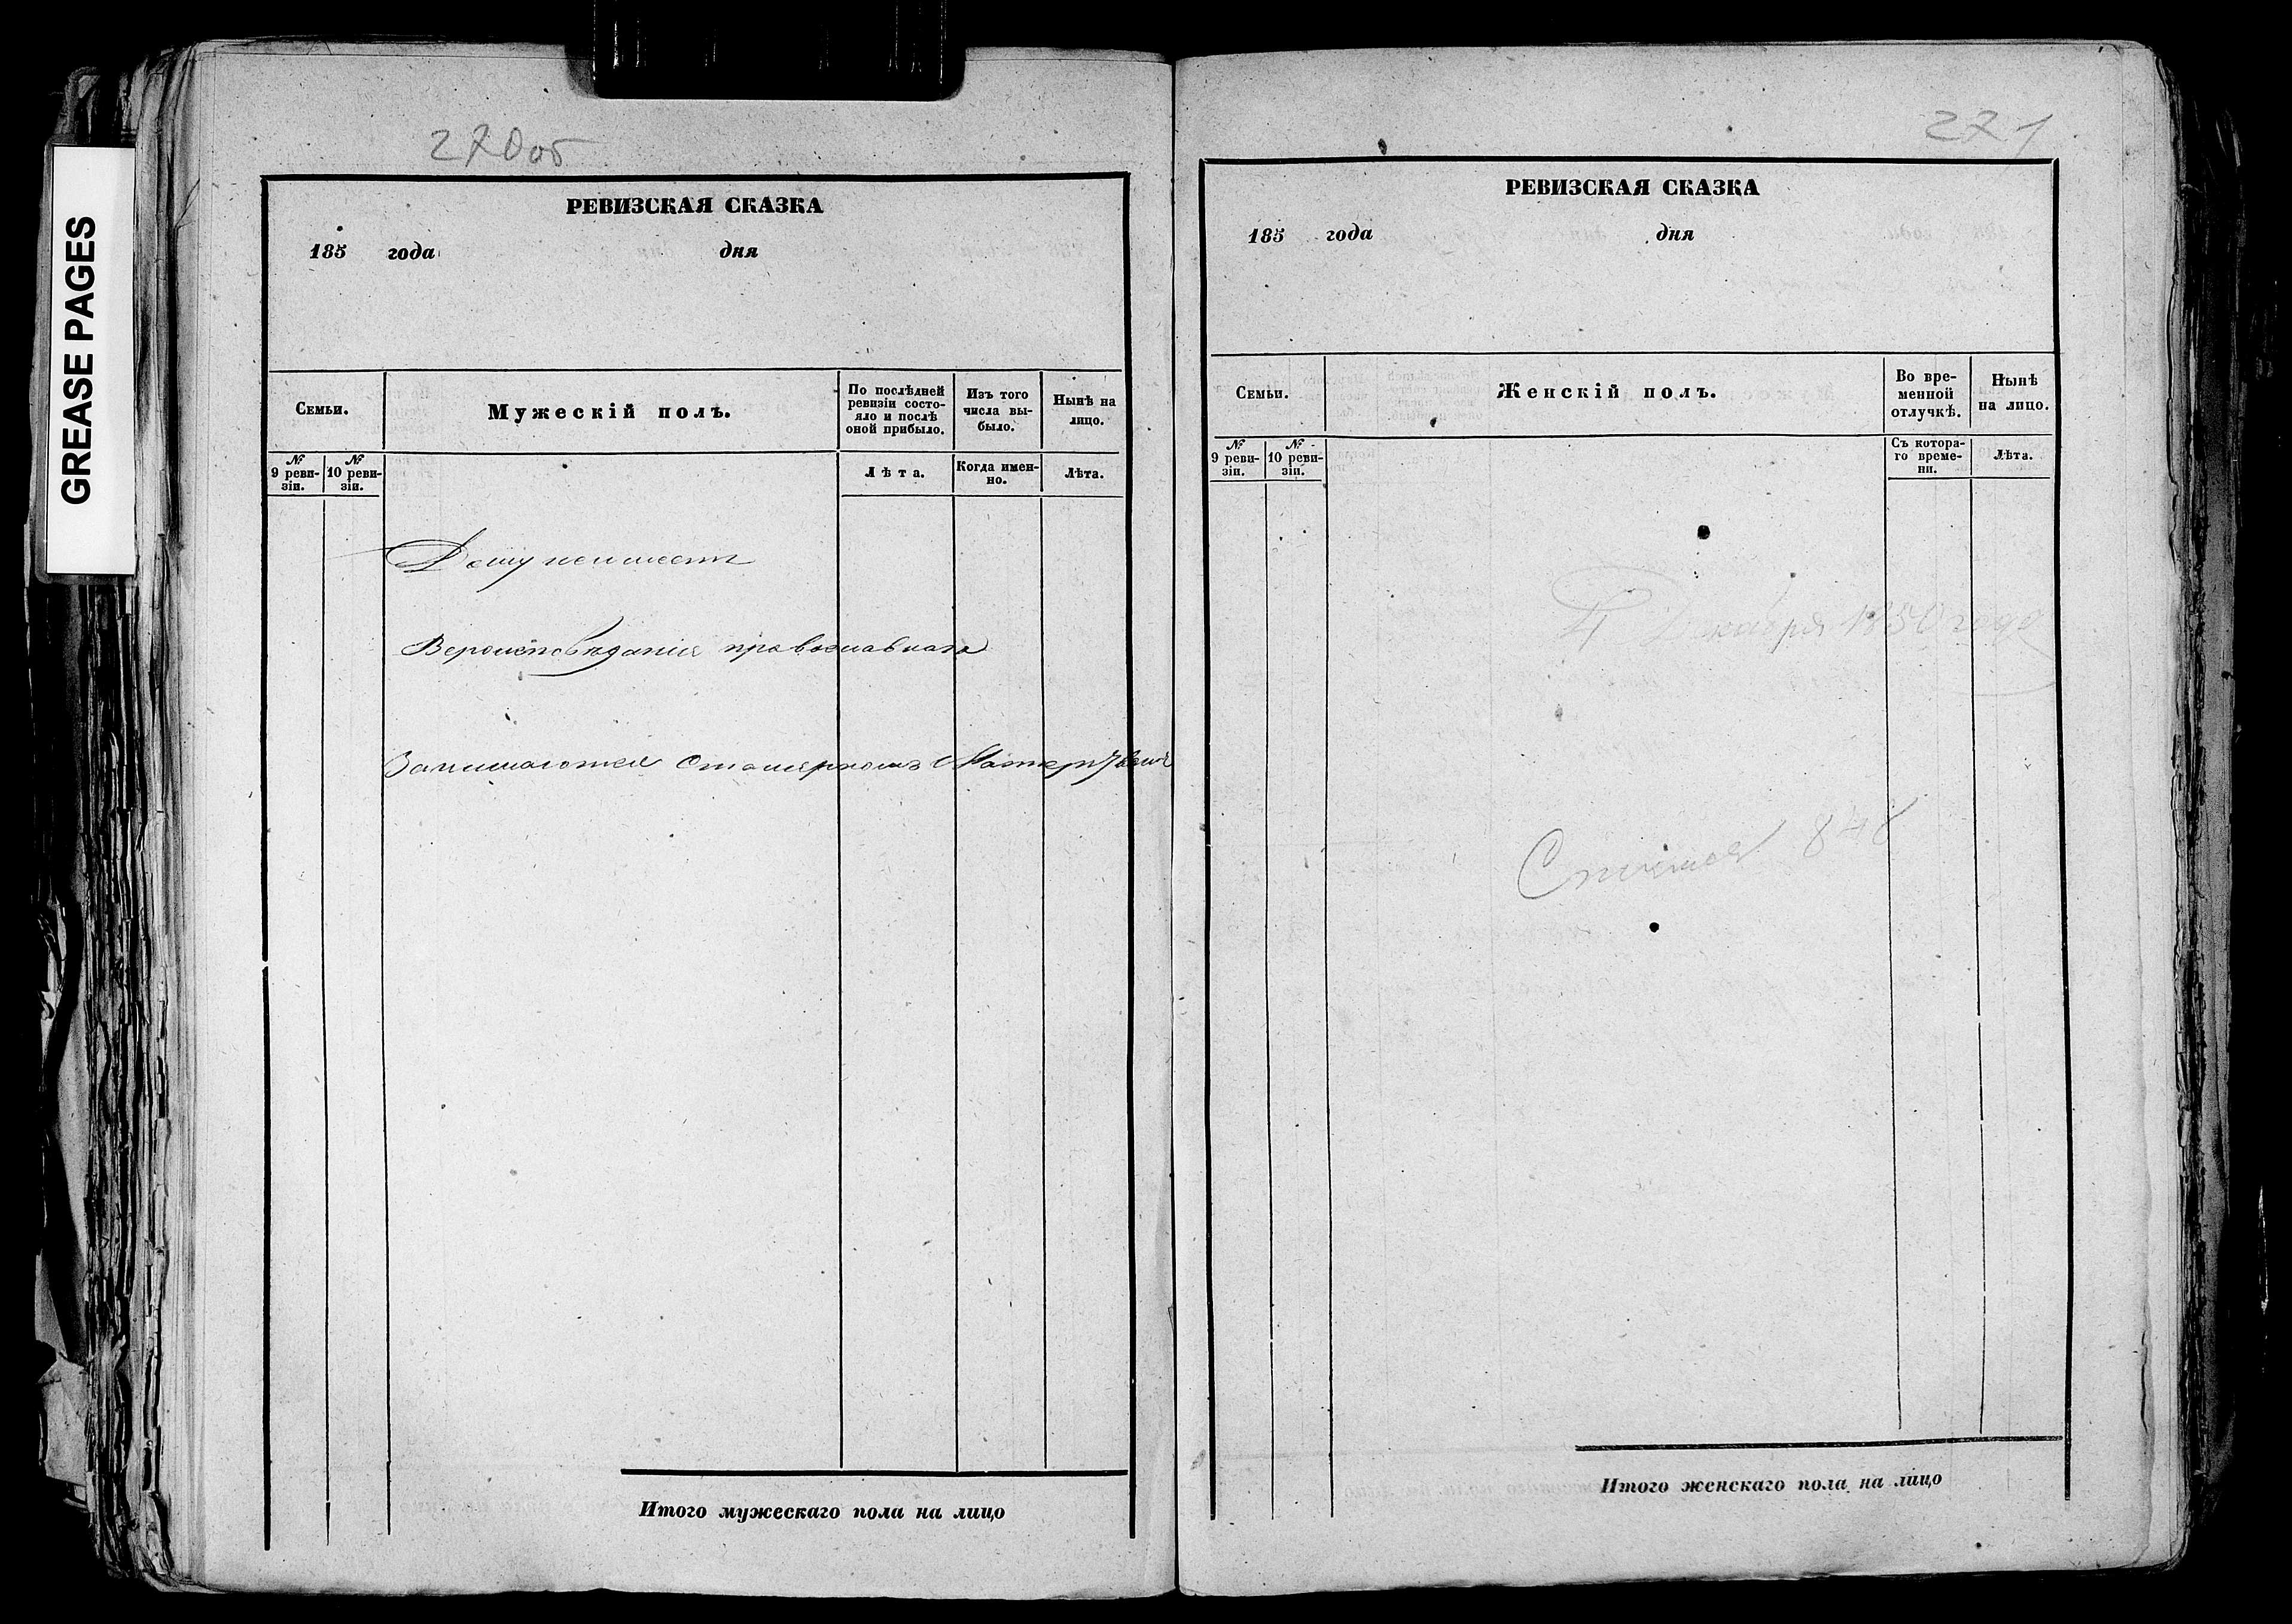 GREASE PAGES
270об
РЕВИЗСКАЯ СКАЗКА
185 года дня
Семьи.
Мужескій полъ.
По послѣдней ревизіи состояло и послѣ оной прибыло.
Изъ того числа выбыло.
Нынѣ на лицо.
№ 9 ревизіи.
№ 10 ревизіи.
Лѣта.
Когда именно.
Лѣта.
Дому неимеетъ
Вероисповѣданія православнаго
Занимаются столярномъ мастерствомъ
Итого мужескаго пола на лицо
271
РЕВИЗСКАЯ СКАЗКА
185 года дня
Семьи.
Женскій полъ.
Во временной отлучкѣ.
Нынѣ на лицо.
№ 9 ревизіи.
№ 10 ревизіи.
Съ котораго времени.
Лѣта.
Декабря 1850 года
848
Итого женскаго пола на лицо